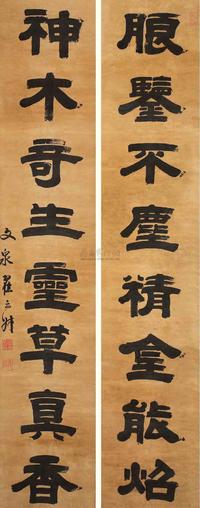 朖鑒不塵精金能焰
神木奇生靈草真香
文泉翟云升